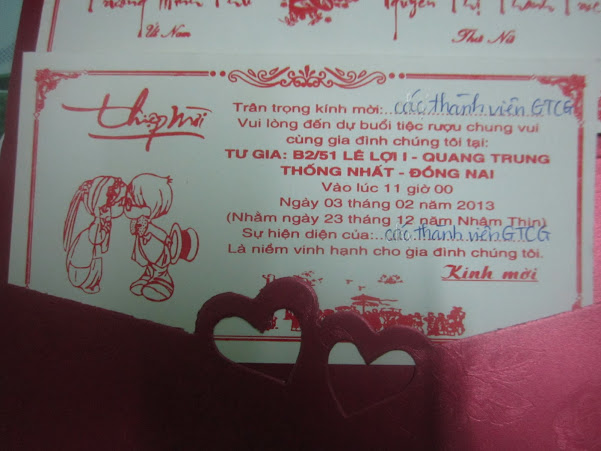 Út Nam
Thứ Nữ
Thiệp Mời
Trân trọng kính mời: các thành viên GTCG
Vui lòng đến dự buổi tiệc rượu chung vui
cùng gia đình chúng tôi tại:
TƯ GIA: B2/51 LÊ LỢI I - QUANG TRUNG
THỐNG NHẤT - ĐỒNG NAI
Vào lúc 11 giờ 00
Ngày 03 tháng 02 năm 2013
(Nhằm ngày 23 tháng 12 năm Nhâm Thìn)
Sự hiện diện của: các thành viên GTCG
Là niềm vinh hạnh cho gia đình chúng tôi.
Kính mời